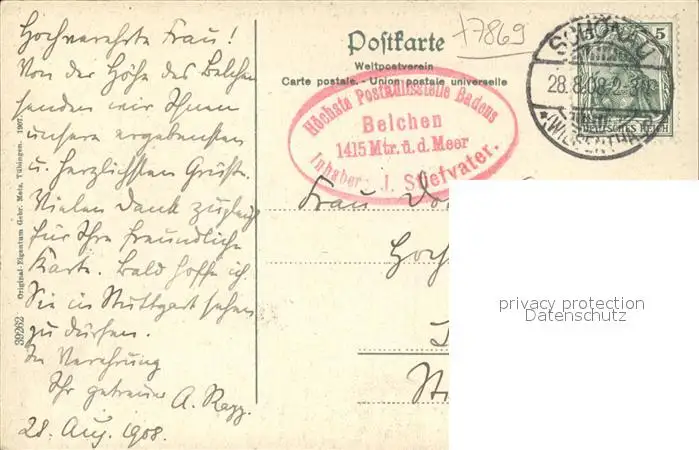 Hochverehrte Frau!
Von der Höhe des Belchen
senden wir Ihnen
unsere ergebensten
u. herzlichsten Grüße.
Vielen Dank zugleich
für Ihre freundliche
Karte. Bald hoffe ich
Sie in Stuttgart sehen
zu dürfen.
In Verehrung
Ihr getreuer A. Rapp.
28. Aug. 1908.
39262 Original-Eigentum Gebr. Metz, Tübingen. 1907.
+7869
Postkarte
Weltpostverein
Carte postale. - Union postale universelle
Höchste Posthilfsstelle Badens
Belchen
1415 Mtr. ü. d. Meer
Inhaber: J. Stiefvater.
SCHÖNAU
28.8.08.2-3
*(WIESENTHAL)
5
DEUTSCHES REICH
Frau
Hoch
St
privacy protection
Datenschutz